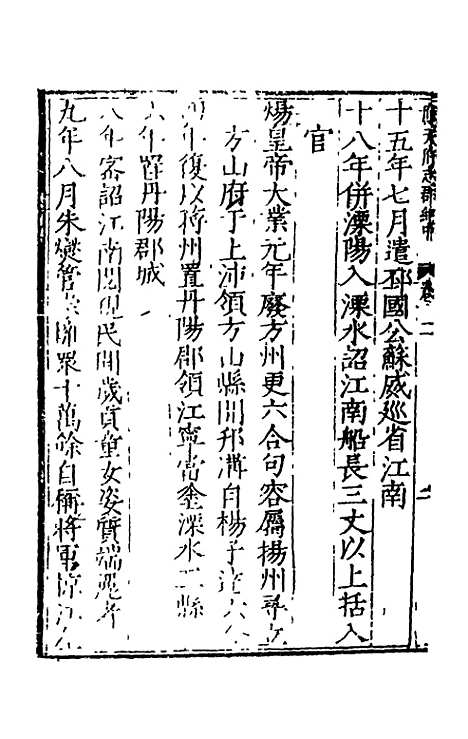 十五年七月遣邳國公蘇威巡省江南
十八年併溧陽入溧水詔江南船長三丈以上括入
官
煬皇帝大業元年廢方州更六合句容屬揚州尋
方山府于上沛領方山縣開邗溝自楊子達六合
年復以蔣州置丹陽郡領江寧當塗溧水三縣
年 丹陽郡城
年密詔江南閱視民間歲貢童女姿質端麗者
九年八月朱燮管崇 眾十萬餘自稱將軍 江左